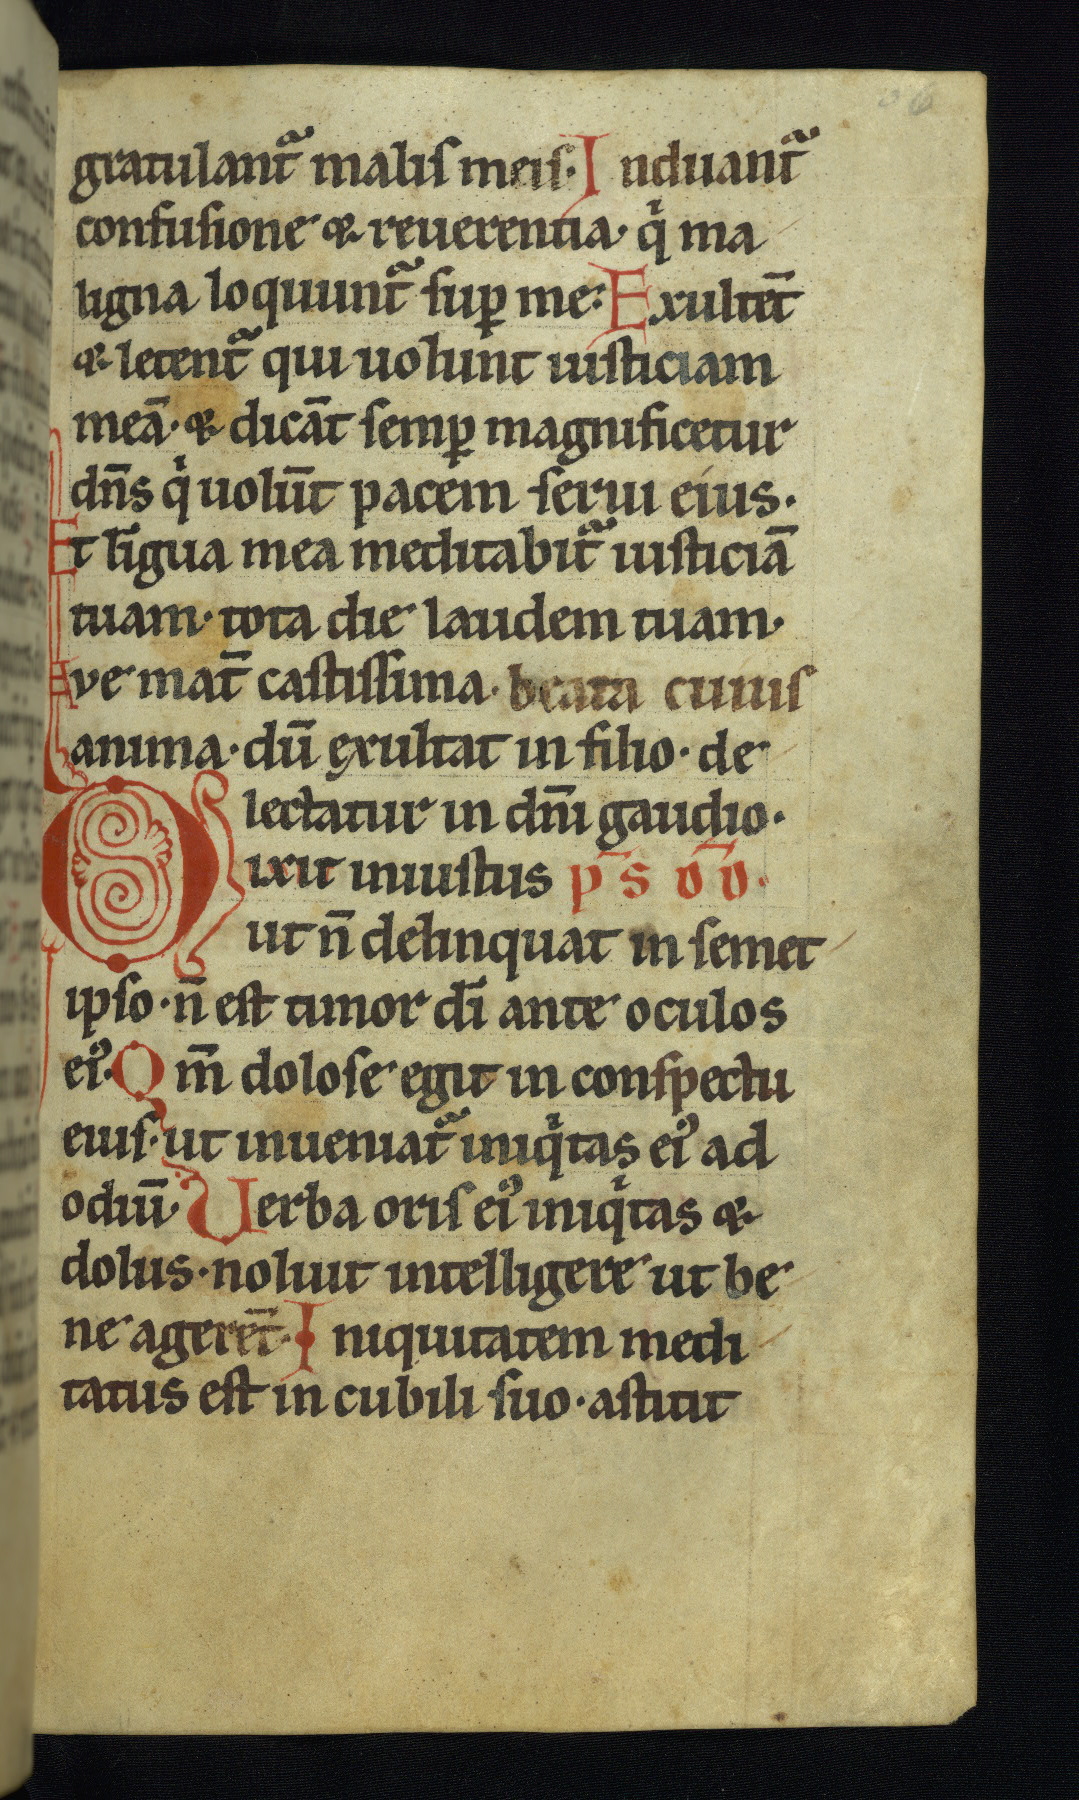 gratulantᷓ malis meis· Induantᷓ
confusione & reuerentia· qͥ ma
ligna loquuntᷓ suꝑ me: Exultēt
& letentᷓ qui uolunt iusticiam
meā· & dicāt semꝑ magnificetur
dn̄s qͥ uolūt pacem serui eius·
Et līgua mea meditabitᷓ iusticiā
tuam· tota die laudem tuam·
Ave mat̄ castissima· beata cuius
anima· dū exultat in filio· de
lectatur in dn̄i gaudio·
Dixit iniustus p̄s dd̄·
ut n̄ delinquat in semet
ipso· n̄ est timor dī ante oculos
eiꝰ· Qm̄ dolose egit in conspectu
eius· ut inueniatᷓ iniqͥtas eiꝰ ad
odiū· Uerba oris eiꝰ iniqͥtas &
dolus· noluit intelligere ut be
ne agerēt· Iniquitatem medi
tatus est in cubili suo· astitit